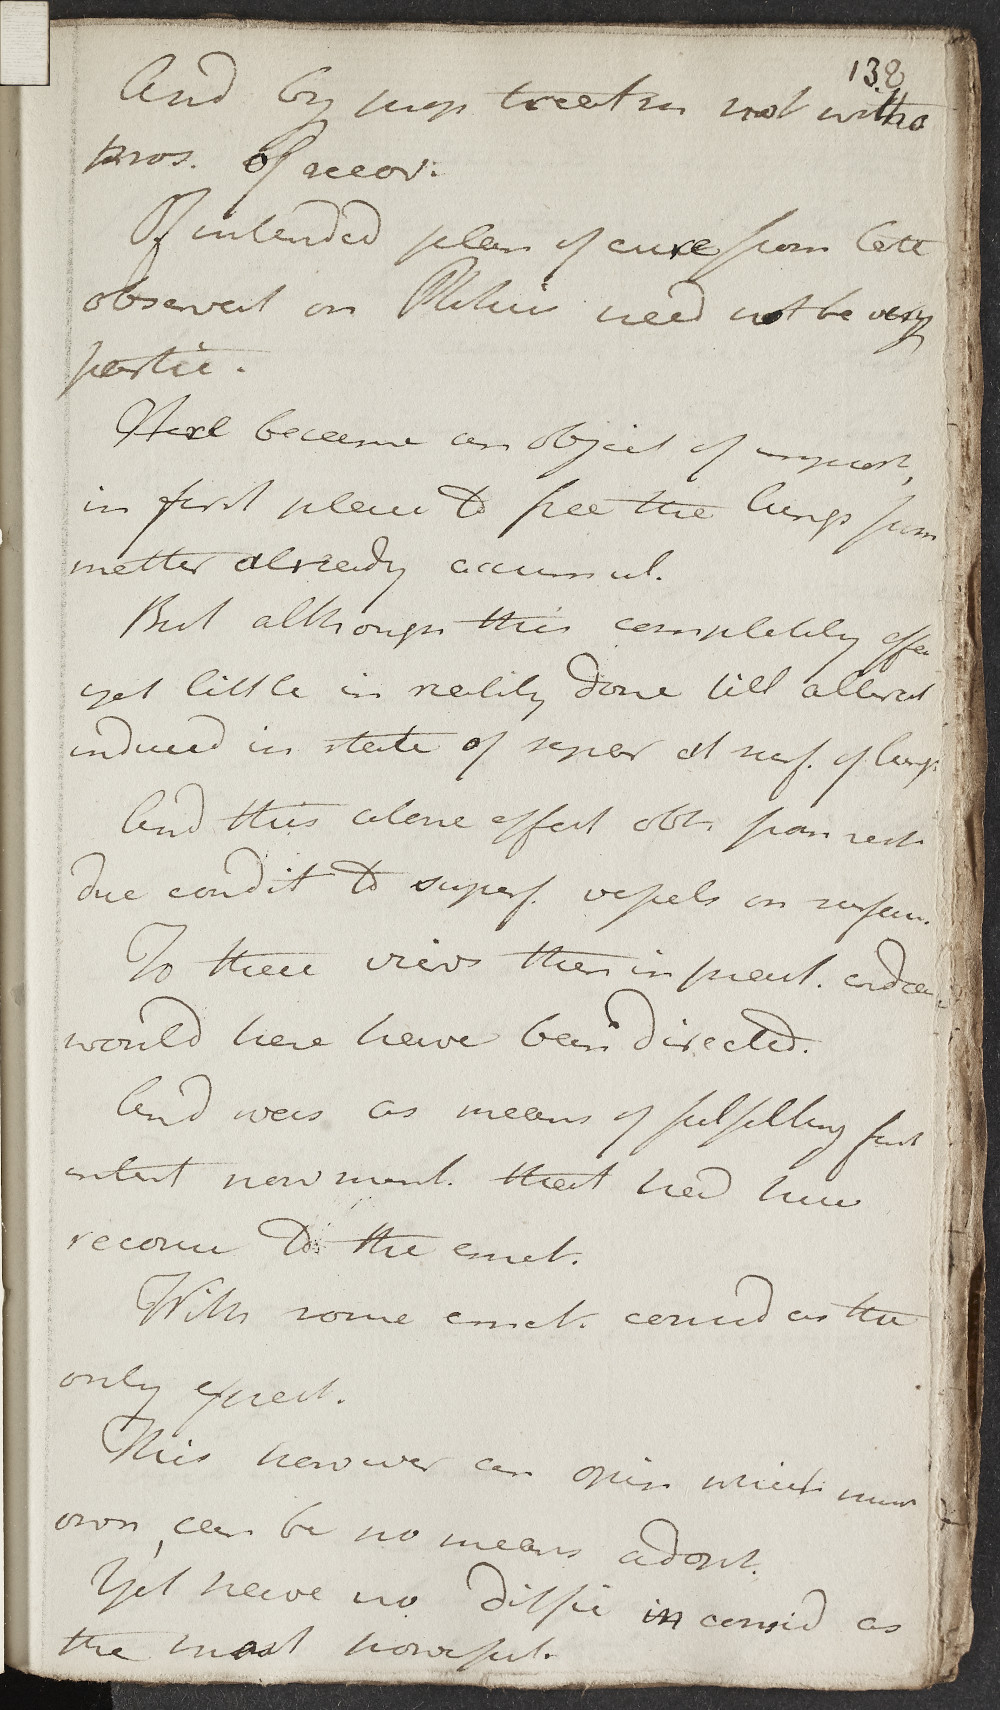 138
And by prop treatm not witho
pros. of recov:
Of intended plan of cure from lett
observat on Phthisis need not be very
partic.
Here became an object of import,
in first place to free the lungs from
matter already accumul.
But although this completely effec
yet little in reality done till alterat
induced in state of vapor at surf. of lungs
And this alone effect obt. from rest
due condit to superf. vessels on surface.
To these views then in pract.
would here have been directed.
And was as means of fulfilling first
intent now ment. that had here
recourse to the emet.
With some emet. consid as the
only expect.
This however an opin which must
own, can be no means adopt.
Yet have no diffic in consid as
the most powerful.